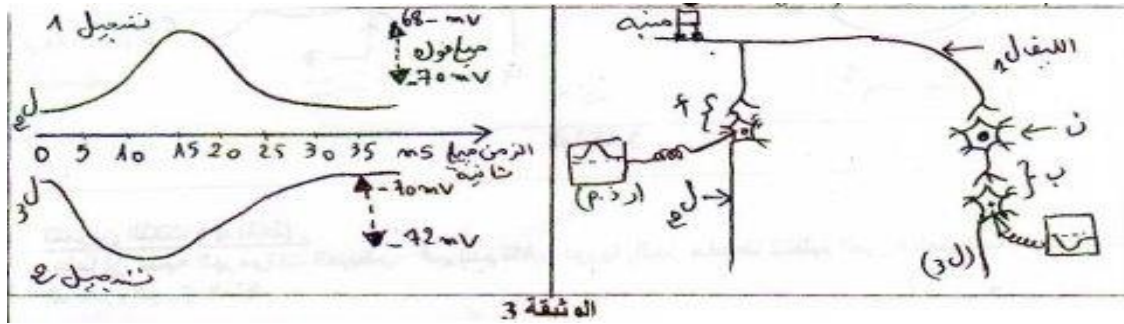 تسجيل 1
-68 mv
ميلي فولت
-70 mV
ل2
0 5 10 15 20 25 30 35 ms
الزمن ميلي ثانية
ل3
-70mV
-72mV
تسجيل 2
منبه
الليف ل1
أ
ن
ب
ل2
(ل3)
الوثيقة 3